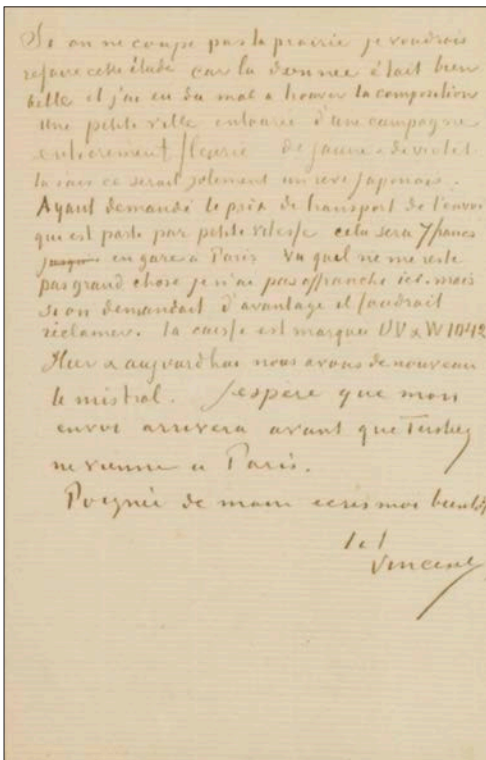 Si on ne coupe pas la prairie je voudrais
refaire cette étude car la donnée était bien
belle et j'ai eu du mal a trouver la composition
une petite ville entourée d'une campagne
entièrement fleurie de jaune & de violet
tu sais ce serait joliment un rêve japonais.
Ayant demandé le prix de transport de l'envoi
qui est parti par petite vitesse cela sera 7 francs
jusque en gare à Paris Vu quil ne me reste
pas grand chose je n'ai pas affranchi ici. mais
si on demandait d'avantage il faudrait
réclamer. la caisse est marquée UV & W 1042
Hier & aujourd'hui nous avons de nouveau
le mistral. J'espère que mon
envoi arrivera avant que Tersteeg
ne vienne a Paris.
Poignée de main écris moi bientôt
t. à t.
Vincent